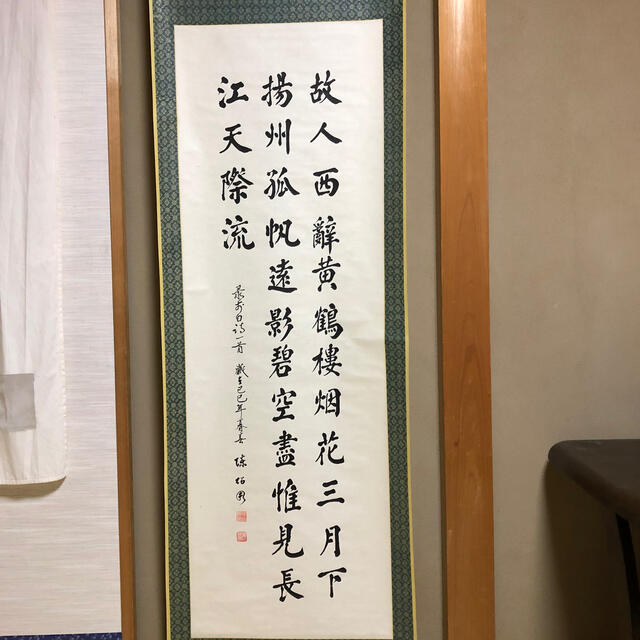 故人西辭黄鶴樓烟花三月下
揚州孤帆遠影碧空盡惟見長
江天際流
录李白诗一首 歲在己巳年春月 陳